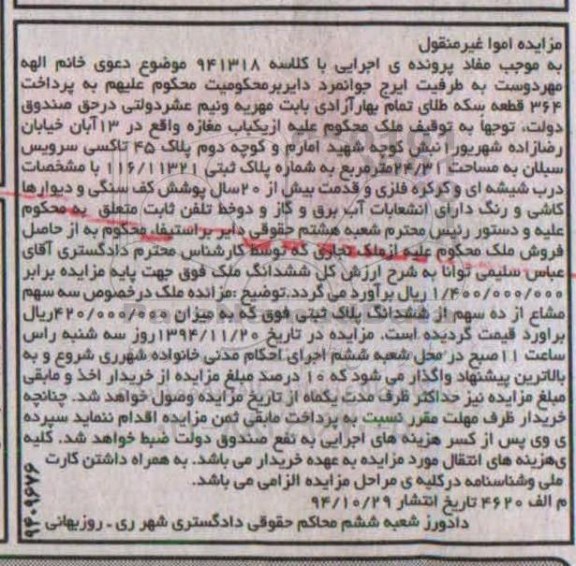 مزایده اموا غیرمنقول
به موجب مفاد پرونده ی اجرایی با کلاسه ۹۴۱۳۱۸ موضوع دعوی خانم الهه
مهردوست به طرفیت ایرج جوانمرد دایربرمحکومیت محکوم علیهم به پرداخت
۳۶۴ قطعه سکه طلای تمام بهارآزادی بابت مهریه ونیم عشردولتی درحق صندوق
دولت، توجهاً به توقیف ملک محکوم علیه ازیکباب مغازه واقع در ۱۳آبان خیابان
رضازاده شهریور۱نبش کوچه شهید امارم و کوچه دوم پلاک ۴۵ تاکسی سرویس
سبلان به مساحت ۲۴/۳۱مترمربع به شماره پلاک ثبتی ۱۱۶/۱۱۳۲۱ با مشخصات
درب شیشه ای و کرکره فلزی و قدمت بیش از ۲۰سال پوشش کف سنگی و دیوارها
کاشی و رنگ دارای انشعابات آب برق و گاز و دوخط تلفن ثابت متعلق به محکوم
علیه و دستور رئیس محترم شعبه هشتم حقوقی دایر براستیفاء محکوم به از حاصل
فروش ملک محکوم علیه ازملک تجاری که توسط کارشناس محترم دادگستری آقای
عباس سلیمی توانا به شرح ارزش کل ششدانگ ملک فوق جهت پایه مزایده برابر
۱/۴۰۰/۰۰۰/۰۰۰ ریال برآورد می گردد.توضیح :مزانده ملک درخصوص سه سهم
مشاع از ده سهم از ششدانگ پلاک ثبتی فوق که به میزان ۴۲۰/۰۰۰/۰۰۰ریال
براورد قیمت گردیده است. مزایده در تاریخ ۱۳۹۴/۱۱/۲۰روز سه شنبه راس
ساعت ۱۱صبح در محل شعبه ششم اجرای احکام مدنی خانواده شهرری شروع و به
بالاترین پیشنهاد واگذار می شود که ۱۰ درصد مبلغ مزایده از خریدار اخذ و مابقی
مبلغ مزایده نیز حداکثر ظرف مدت یکماه از تاریخ مزایده وصول خواهد شد. چنانچه
خریدار ظرف مهلت مقرر نسبت به پرداخت مابقی ثمن مزایده اقدام ننماید سپرده
ی وی پس از کسر هزینه های اجرایی به نفع صندوق دولت ضبط خواهد شد. کلیه
یهزینه های انتقال مورد مزایده به عهده خریدار می باشد. به همراه داشتن کارت
ملی وشناسنامه درکلیه ی مراحل مزایده الزامی می باشد.
م الف ۴۶۲۰ تاریخ انتشار ۹۴/۱۰/۲۹
دادورز شعبه ششم محاکم حقوقی دادگستری شهر ری ـ روزبهانی
۹۴۰۹۶۷۶